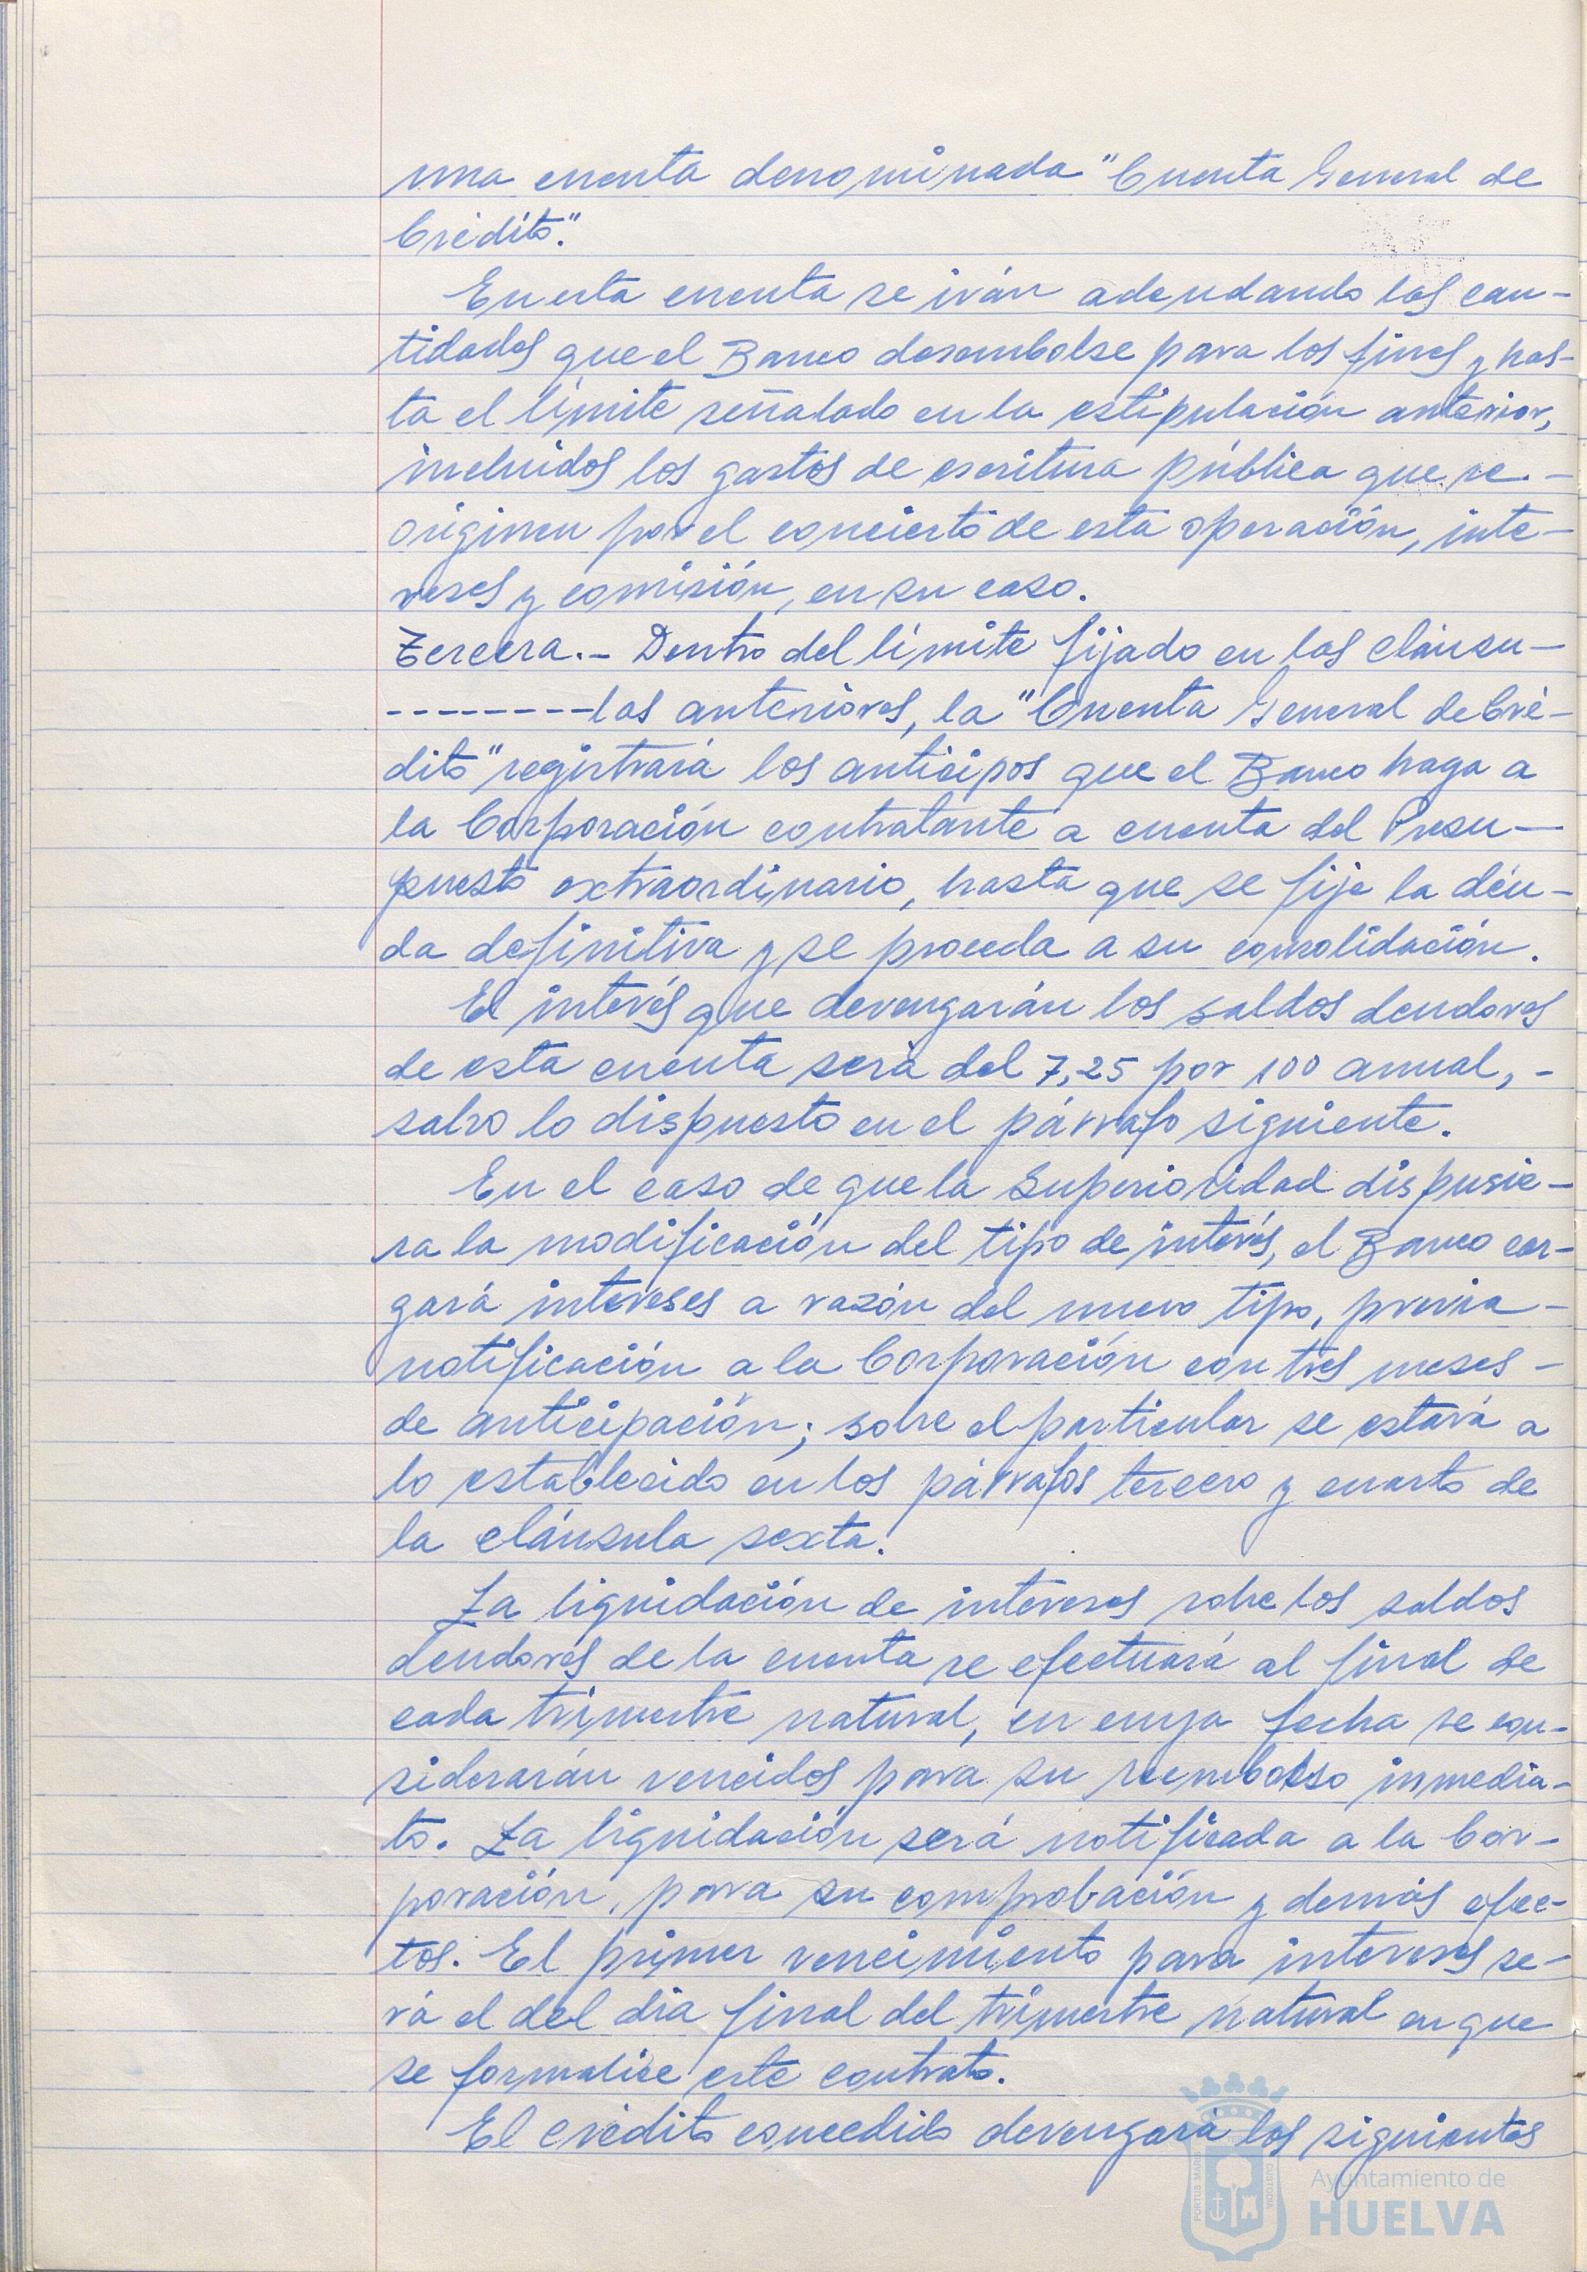 una cuenta denominada "Cuenta General de
Crédito".
En esta cuenta se irán adeudando las can-
tidades que el Banco desembolse para los fines y has-
ta el límite señalado en la estipulación anterior,
incluidos los gastos de escritura pública que se -
originen por el concierto de esta operación, inte-
reses y comisión, en su caso.
Tercera.- Dentro del límite fijado en las cláusu-
--------las anteriores, la "Cuenta General de Cré-
dito" registrará los anticipos que el Banco haga a
la Corporación contratante a cuenta del Presu-
puesto extraordinario, hasta que se fije la deu-
da definitiva y se proceda a su consolidación.
El interés que devengarán los saldos deudores
de esta cuenta será del 7,25 por 100 anual, -
salvo lo dispuesto en el párrafo siguiente.
En el caso de que la Superioridad dispusie-
ra la modificación del tipo de interés, el Banco car-
gará intereses a razón del nuevo tipo, previa -
notificación a la Corporación con tres meses -
de anticipación; sobre el particular se estará a
lo establecido en los párrafos tercero y cuarto de
la cláusula sexta.
La liquidación de intereses sobre los saldos
deudores de la cuenta se efectuará al final de
cada trimestre natural, en cuya fecha se con-
siderarán vencidos para su reembolso inmedia-
to. La liquidación será notificada a la Cor-
poración, para su comprobación y demás efec-
tos. El primer vencimiento para intereses se-
rá el del día final del trimestre natural en que
se formalice este contrato.
El crédito concedido devengará los siguientes
Ayuntamiento de
HUELVA